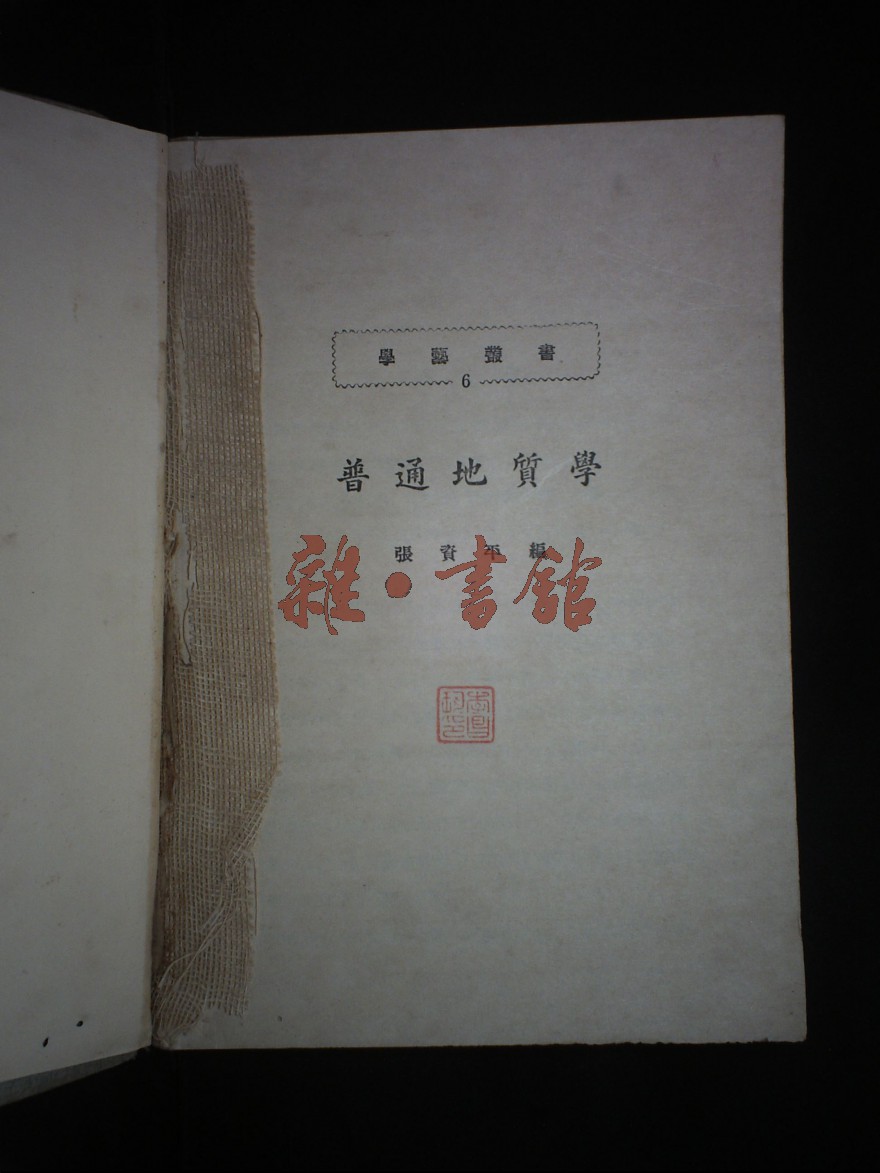 學藝叢書
6
普通地質學
張資平編
雜·書館